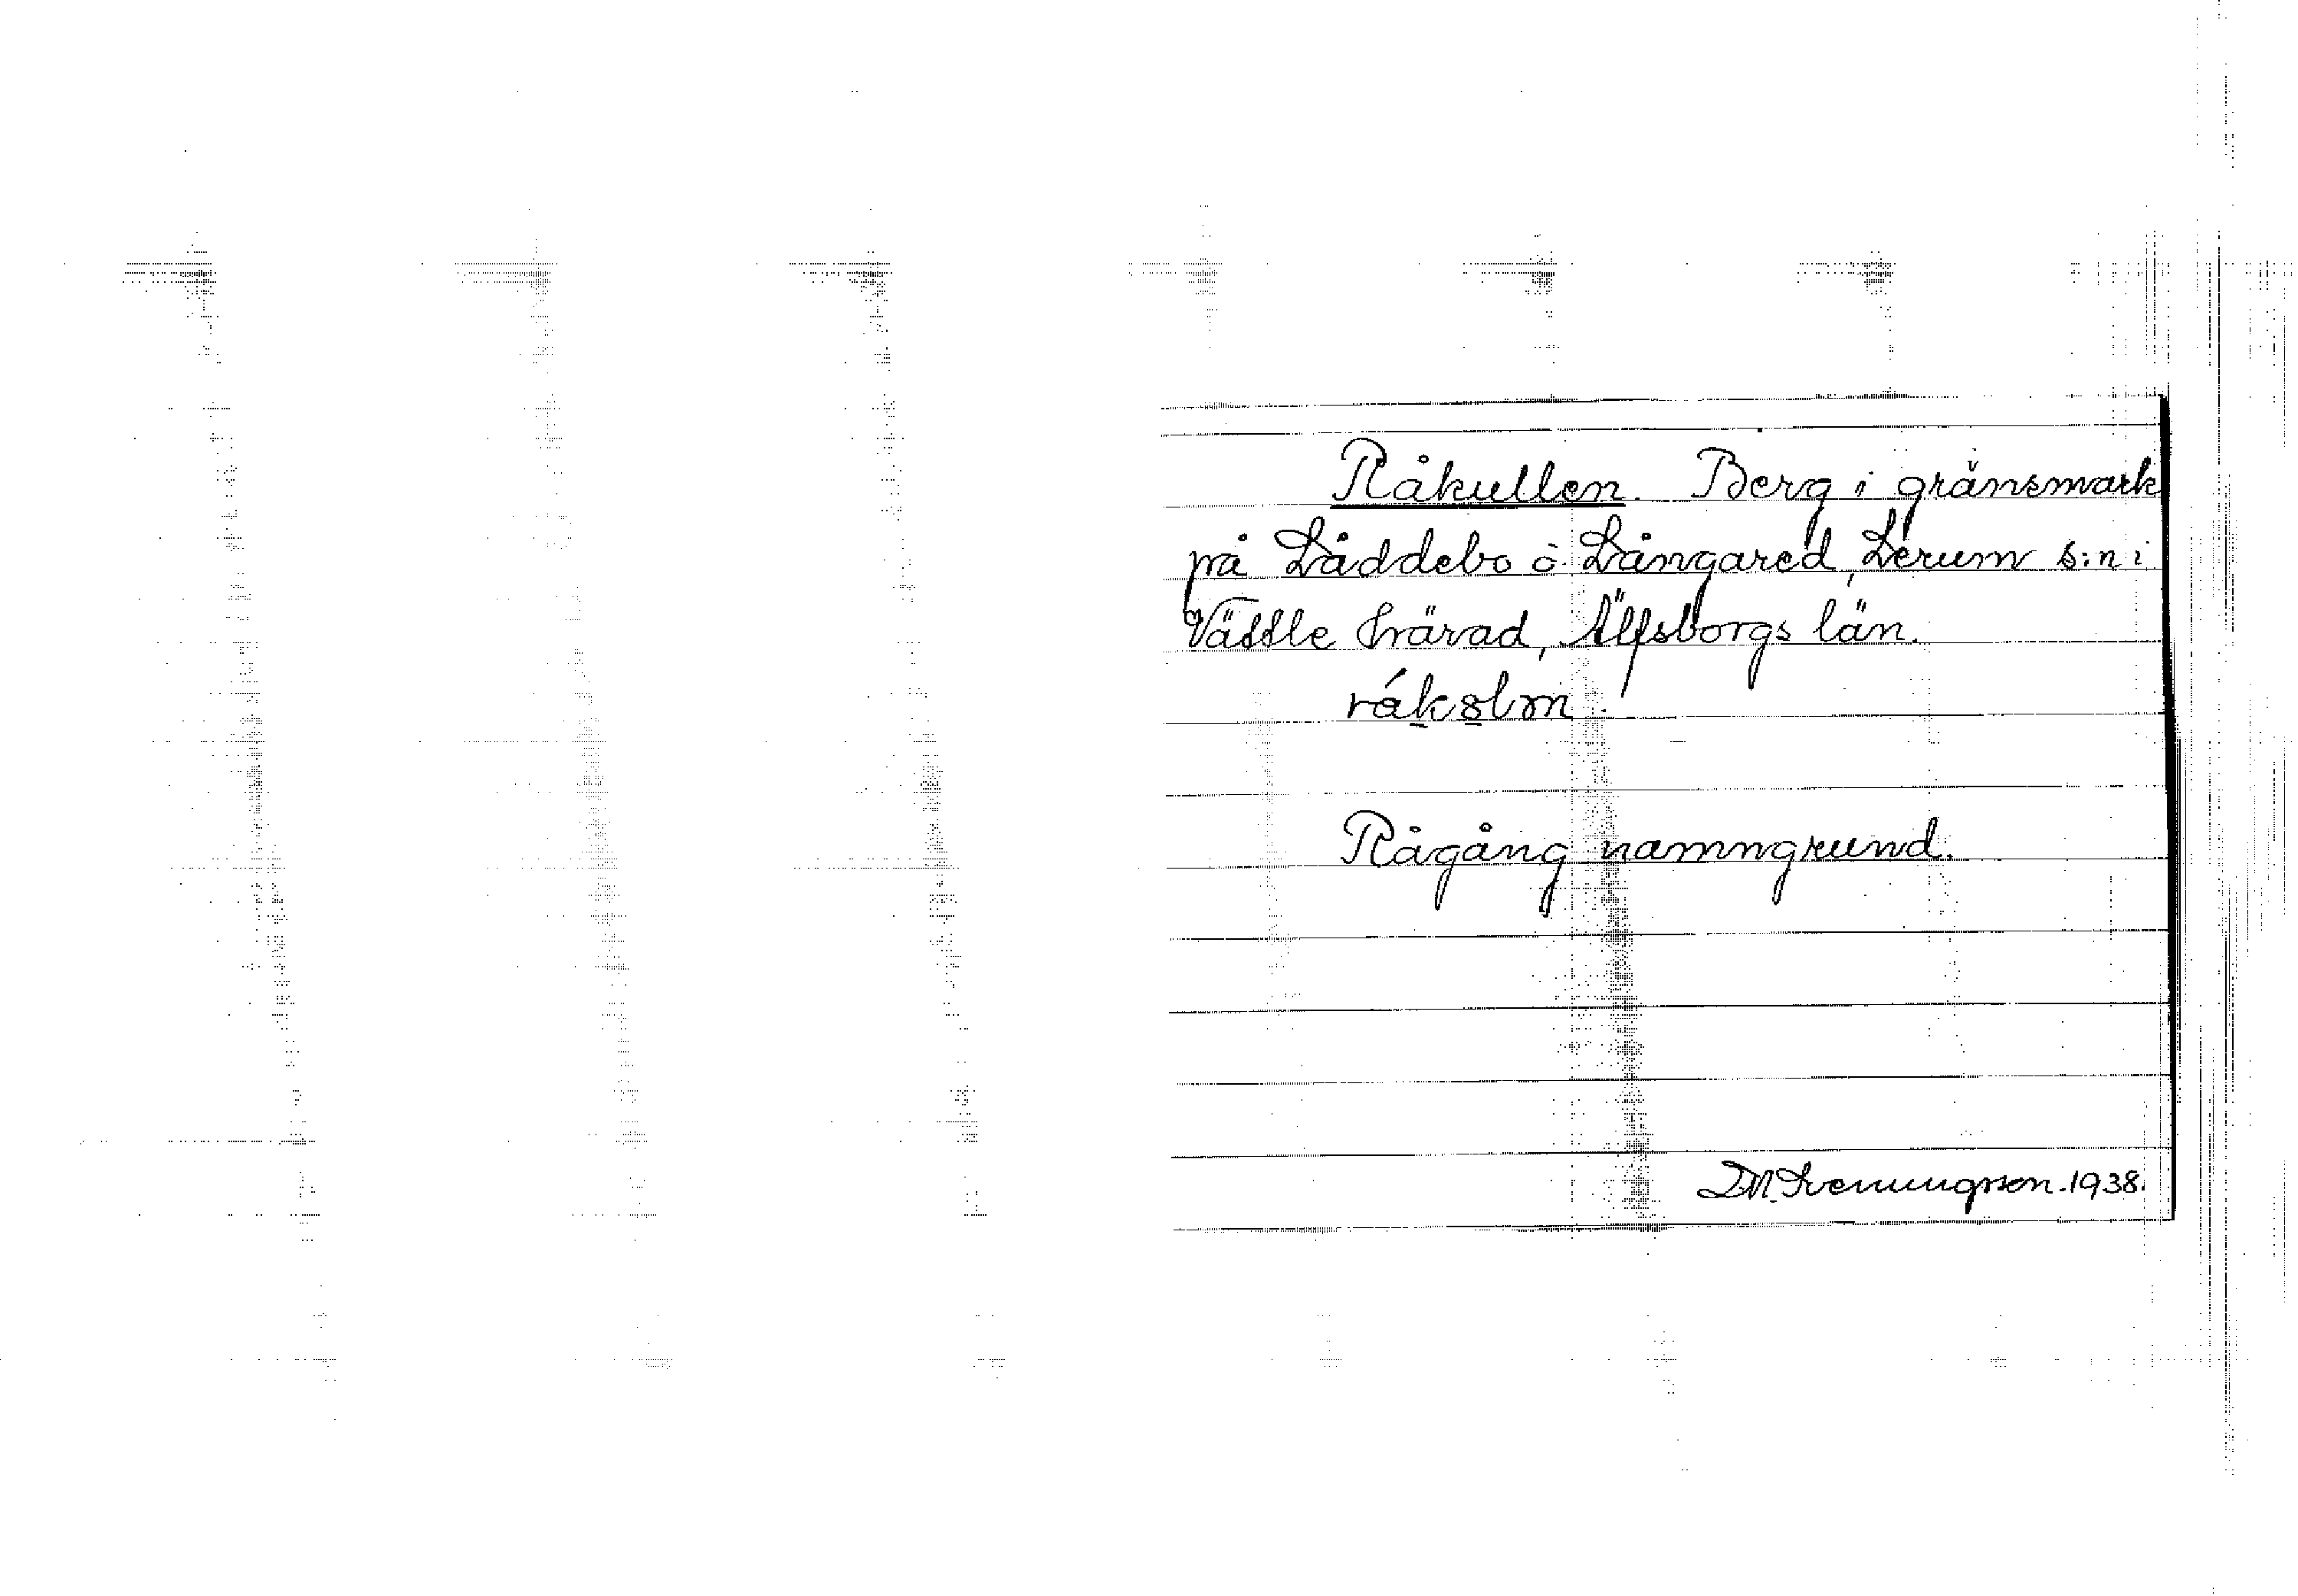 Råkullen. Berg i gränsmark
på Låddebo o Långared, Lerum s:n i
Vättle härad, Älfsborgs län.
Rågång namngrund.
D.M. Svenungsson. 1938.